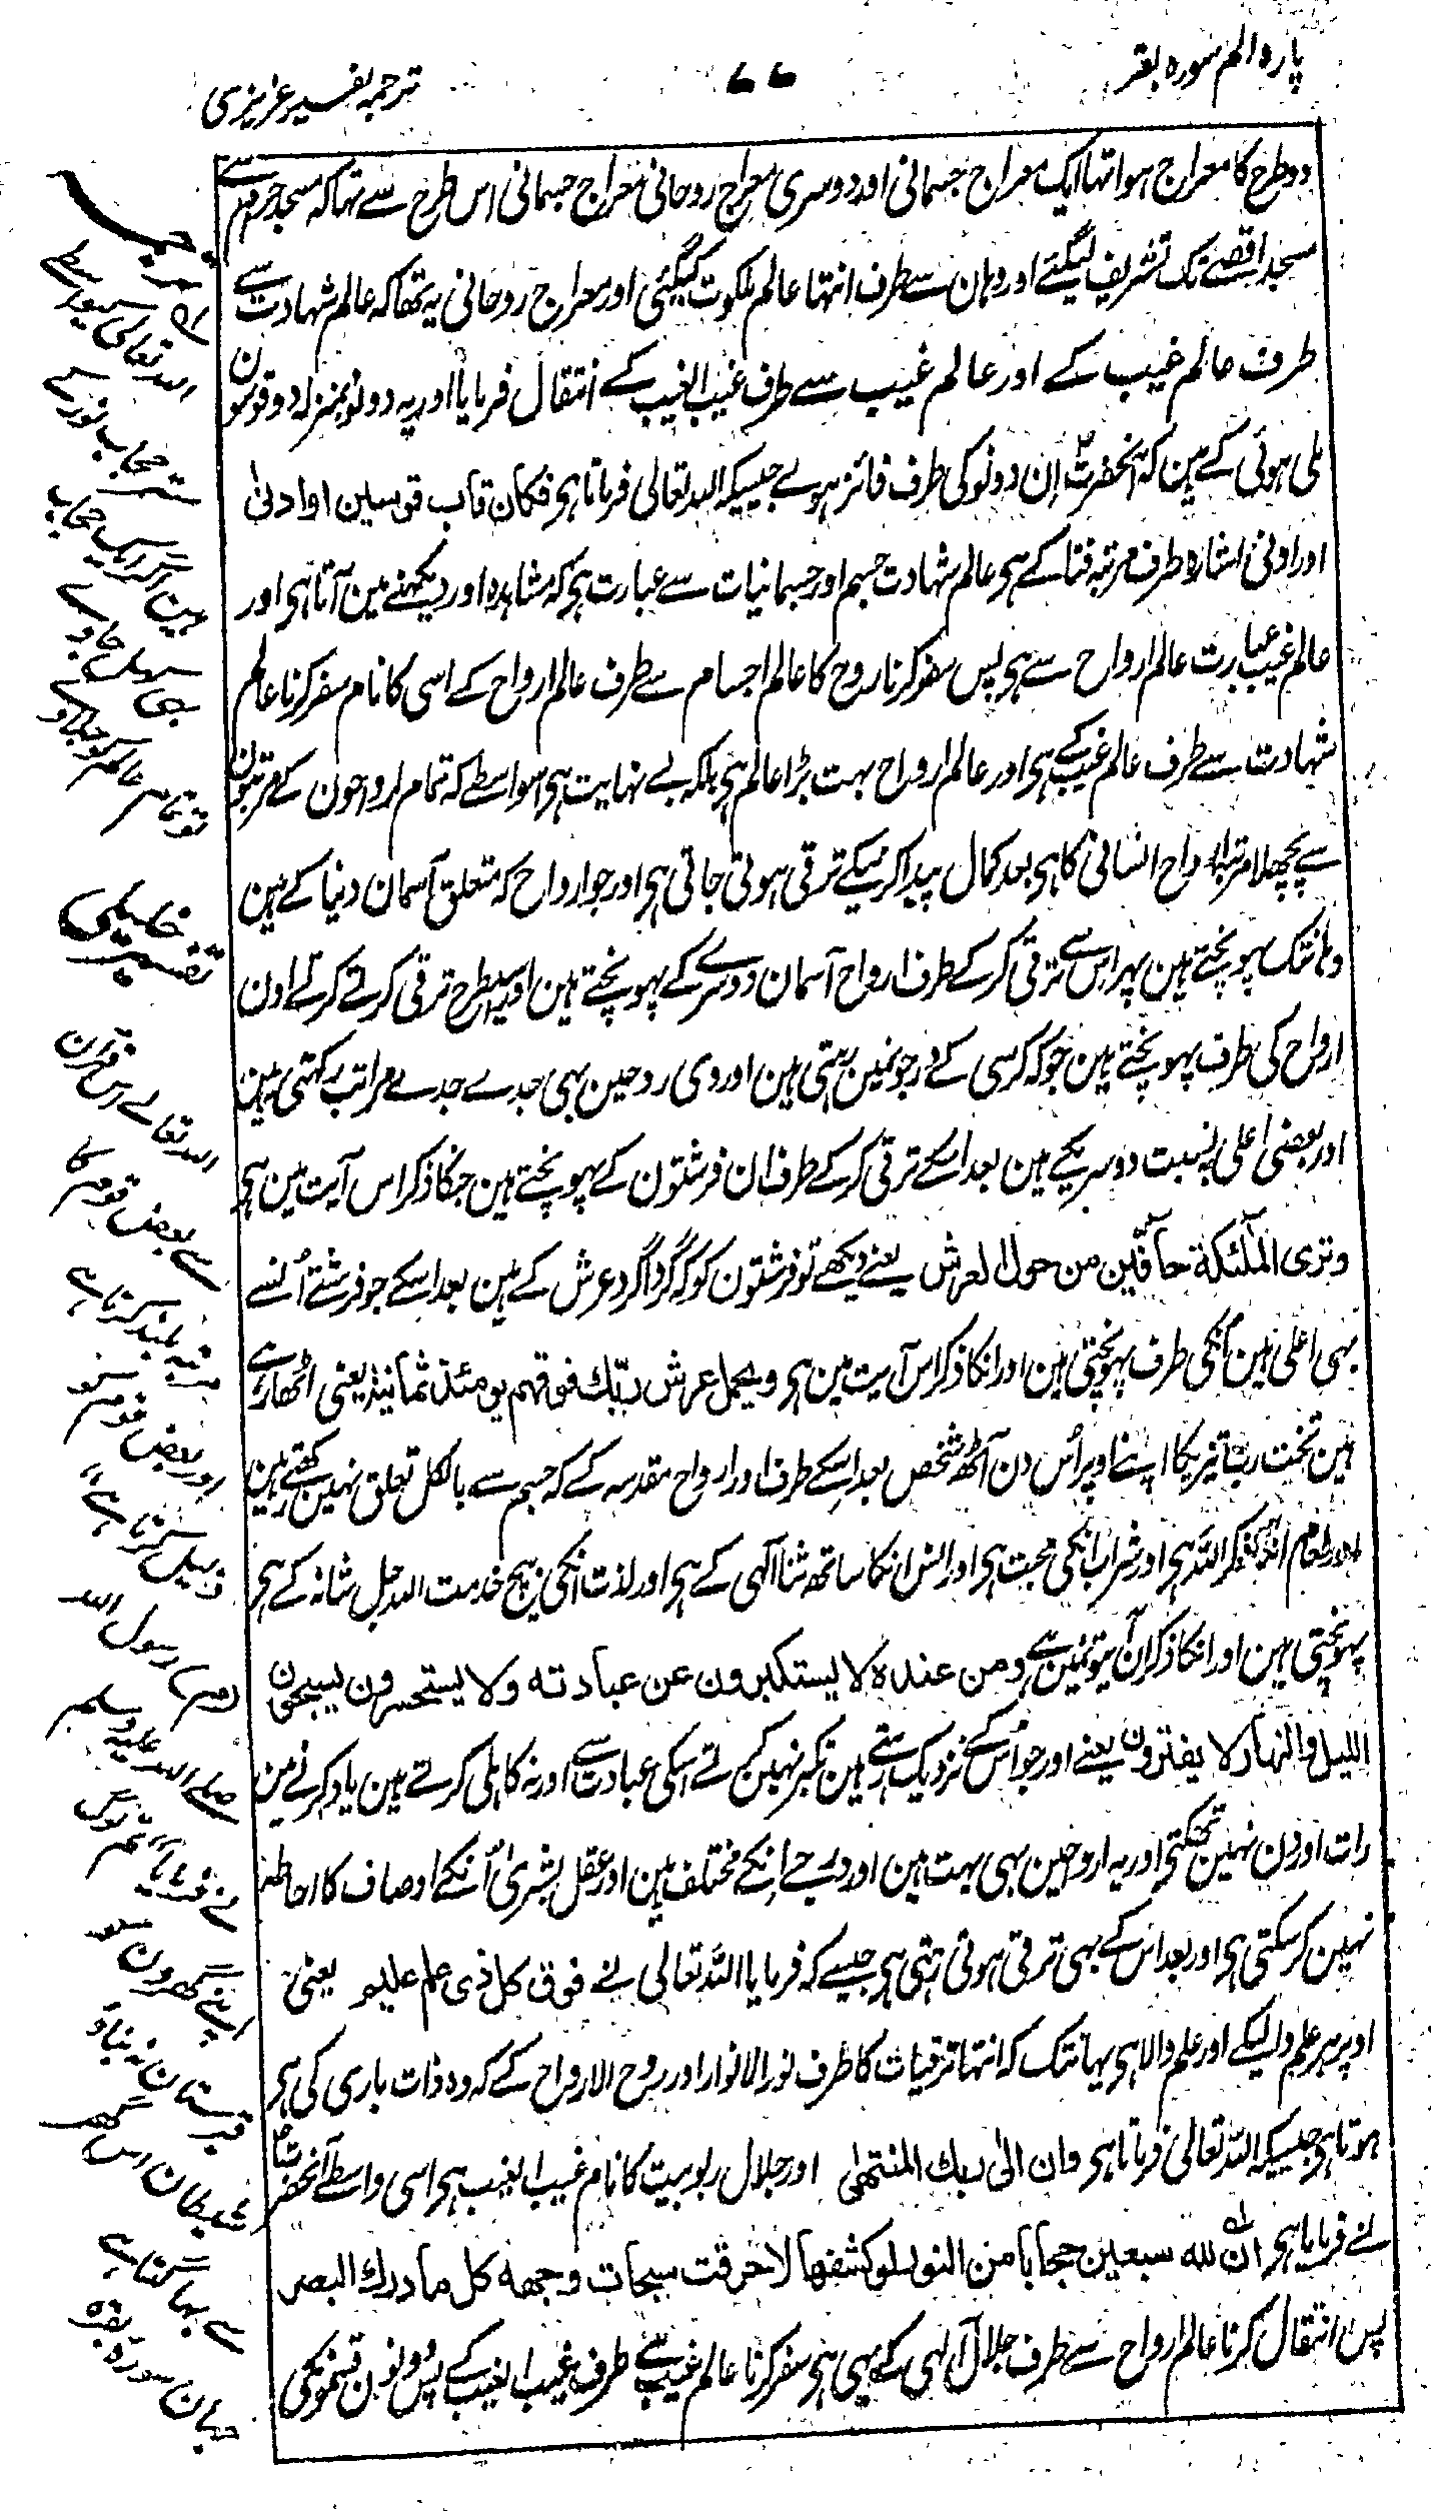 پاره الم سوره بقر
٦٦
ترجمہ تفسیر عزیزی
دو طرح کا معراج ہوا تہا ایک معراج جسمانی اور دوسری معراج روحانی معراج جسمانی اس طرح سے تہا کہ مسجد حرام سے
مسجد اقصے تک تشریف لیگئے اور وہان سے طرف انتہا عالم ملکوت کیگئی اور معراج روحانی یہ تھا کہ عالم شہادت سے
طرف عالم غیب کے اور عالم غیب سے طرف غیب الغیب کے انتقال فرمایا اور یہ دونو بمنزلہ دو قوسون
ملی ہوئی کے ہین کہ آنحضرتؐ ان دونو کی طرف فائز ہوے جیسیکہ اللہ تعالی فرماتا ہی فکان قاب قوسین او ادنیٰ
اور ادنی اشارہ طرف مرتبہ فنا کے ہی عالم شہادت جسم اور جسمانیات سے عبارت ہی کہ مشاہدہ اور دیکہنے مین آتا ہی اور
عالم غیب عبارت عالم ارواح سے ہی پس سفر کرنا روح کا عالم اجسام سے طرف عالم ارواح کے اسی کا نام سفر کرنا عالم
شہادت سے طرف عالم غیب کے ہی اور عالم ارواح بہت بڑا عالم ہی بلکہ بے نہایت ہی اسواسطے کہ تمام اروا حون کے مرتبون
سے پچھلا مرتبہ ارواح انسانی کا ہی بعد کمال پیدا کرنیکے ترقی ہوتی جاتی ہی اور جو ارواح کہ متعلق آسمان دنیا کے ہین
وہانتک پہونچتے ہین پہر اس سے ترقی کر کے طرف ارواح آسمان دوسرے کے پہونچتے ہین اور اسیطرح ترقی کرتے کرتے اون
ارواح کی طرف پہونچتے ہین جو کہ کرسی کے درجونمین رہتی ہین اور وی روحین بہی جدے جدے مراتب رکہتی ہین
اور بعضی اعلی بہ نسبت دوسریکے ہین بعد اسکے ترقی کر کے طرف ان فرشتون کے پہونچتے ہین جنکا ذکر اس آیت مین ہی
وتری الملٰئکة حآفّین من حول العرش یعنے دیکھے تو فرشتون کو کہ گردا گرد عرش کے ہین بعد اسکے جو فرشتے اُنسے
بہی اعلی ہین اُنکی طرف پہونچتی ہین اور انکا ذکر اس آیت مین ہی ویحمل عرش ربّك فوقہم یومئذ ثمانیة یعنی اٹھارہے
ہین تخت رب تیریکا اپنے اوپر اُس دن آٹھ شخص بعد اسکے طرف اور ارواح مقدسہ کے کہ جسم سے بالکل تعلق نہین رکھتے ہین
اور طعام انکا ذکر اللہ ہی اور شراب انکی محبت ہی اور انس انکا ساتھ ثنا الٰہی کے ہی اور لذت انکی بیچ خدمت اللہ جل شانہ کے ہی
پہونچتی ہین اور انکا ذکر ان آیتونمین ہے ومن عندہ لا یستکبرون عن عبادتہ ولا یستحسرون یسبحون
اللیل والنہار لا یفترون یعنے اور جو اُسکے نزدیک رہتے ہین تکبر نہین کرتے اسکی عبادت سے اور نہ کاہلی کرتے ہین یاد کرنے مین
رات اور دن نہین تھکتے اور یہ اروحین بہی بہت ہین اور درجے انکے مختلف ہین اور عقل بشری اُنکے اوصاف کا احاطہ
نہین کر سکتی ہی اور بعد اس کے بہی ترقی ہوتی رہتی ہی جیسے کہ فرمایا اللہ تعالی نے فوق کل ذی علم علیم یعنی
اوپر ہر علم والیکے اور علم والا ہی یہانتک کہ انتہا ترقیات کا طرف نور الانوار اور روح الارواح کے کہ وہ ذات باری کی ہی
ہوتا ہی جیسیکہ اللہ تعالی فرماتا ہی وان الیٰ ربك المنتہیٰ اور جلال ربوبیت کا نام غیب الغیب ہی اسی واسطے آنحضرتؐ
نے فرمایا ہی ان للہ سبعین حجابا من النور لو کشفہا لاحرقت سبحات وجہہ کل ما ادرك البصر
پس انتقال کرنا عالم ارواح سے طرف جلال الٰہی کے یہی ہی سفر کرنا عالم غیب سے طرف غیب الغیب کے پس دونون قسمونکی
ترجمہ
اللہ تعالی کیواسطے
ستر حجاب نور کے
ہین اگر ایک حجاب
بھی کہل جاوے
تو تمام عالم کو جلا دے
تفسیر خلیلی
اللہ تعالے اس قرآن
سے بعض قوم کا
مرتبہ بلند کرتا ہے
اور بعض قوم کو
ذلیل کرتا ہے
رسول اللہ
صلے اللہ علیہ وسلم
نے فرمایا تم لوگ
اپنے گھرون کو
قبرستان نہ بناؤ
شیطان اس گھر
سے بھاگتا ہے
جہان سورۃ بقرہ